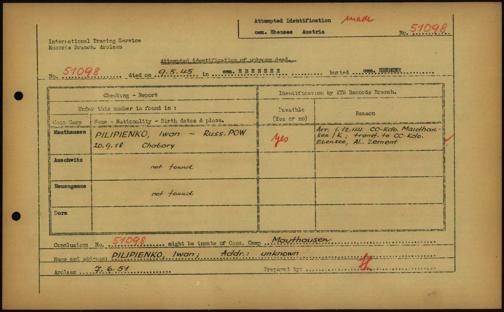 Attempted Identification male
cem. Ebensee Austria No. 51098
International Tracing Service
Records Branch, Arolsen
Attempted identification of unknown dead.
No. 51098 died on 9.5.45 in cem. EBENSEE buried cem. EBENSEE
Checking - Report
Identification by ITS Records Branch.
Under this number is found in :
Positive
(Yes or no)
Reason
Conc Camp Name - Nationality - Birth dates & place.
Mauthausen PILIPIENKO, Iwan ~ Russ. POW
20.9.18 Chobory
Yes
Arr. 1.12.44 CC-Kdo. Mauthau-
sen/K; transf. to CC-Kdo.
Ebensee, AL. Zement
Auschwitz not found
Neuengamme not found
Dora
Conclusion No. 51098 might be inmate of Conc. Camp Mauthausen
Name and address: PILIPIENKO, Iwan; Addr.: unknown
Arolsen 7.6.51 Prepared by: